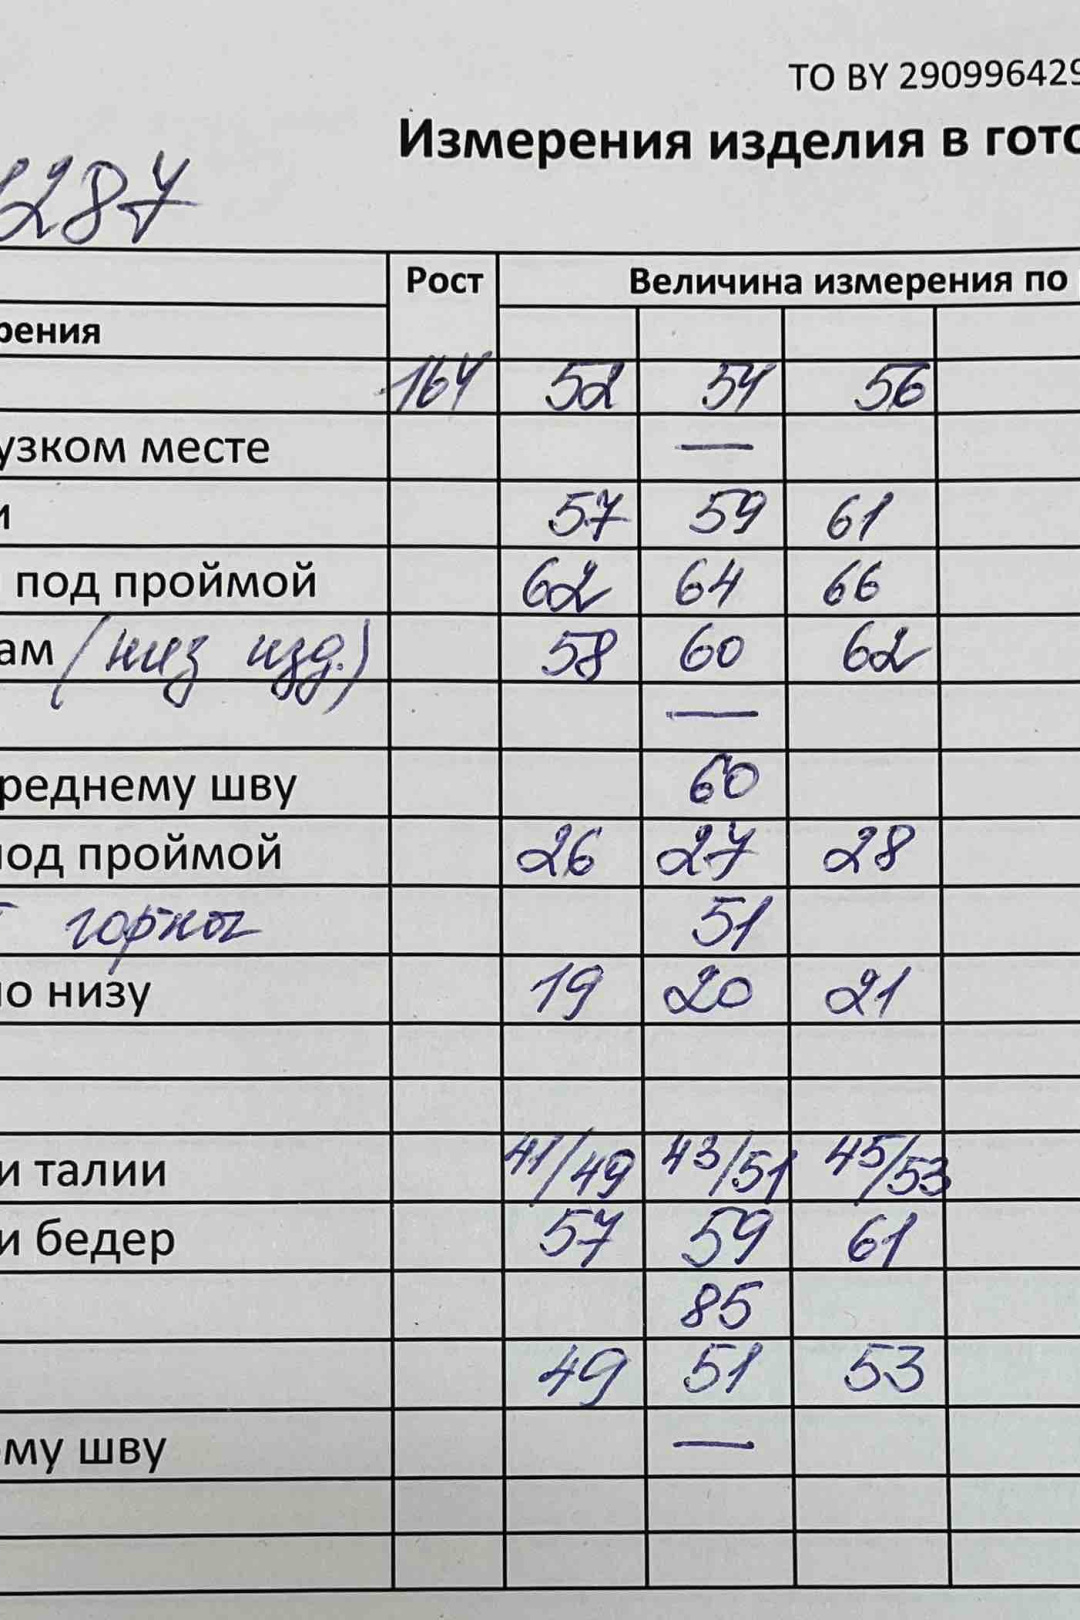 ТО BY 290996429
Измерения изделия в гото
1287
Рост Величина измерения по
рения
164 52 54 56
узком месте —
и 57 59 61
под проймой 62 64 66
ам (низ изд.) 58 60 62
—
реднему шву 60
под проймой 26 27 28
от горл 51
по низу 19 20 21
и талии 41/49 43/51 45/53
и бедер 57 59 61
85
49 51 53
ому шву —